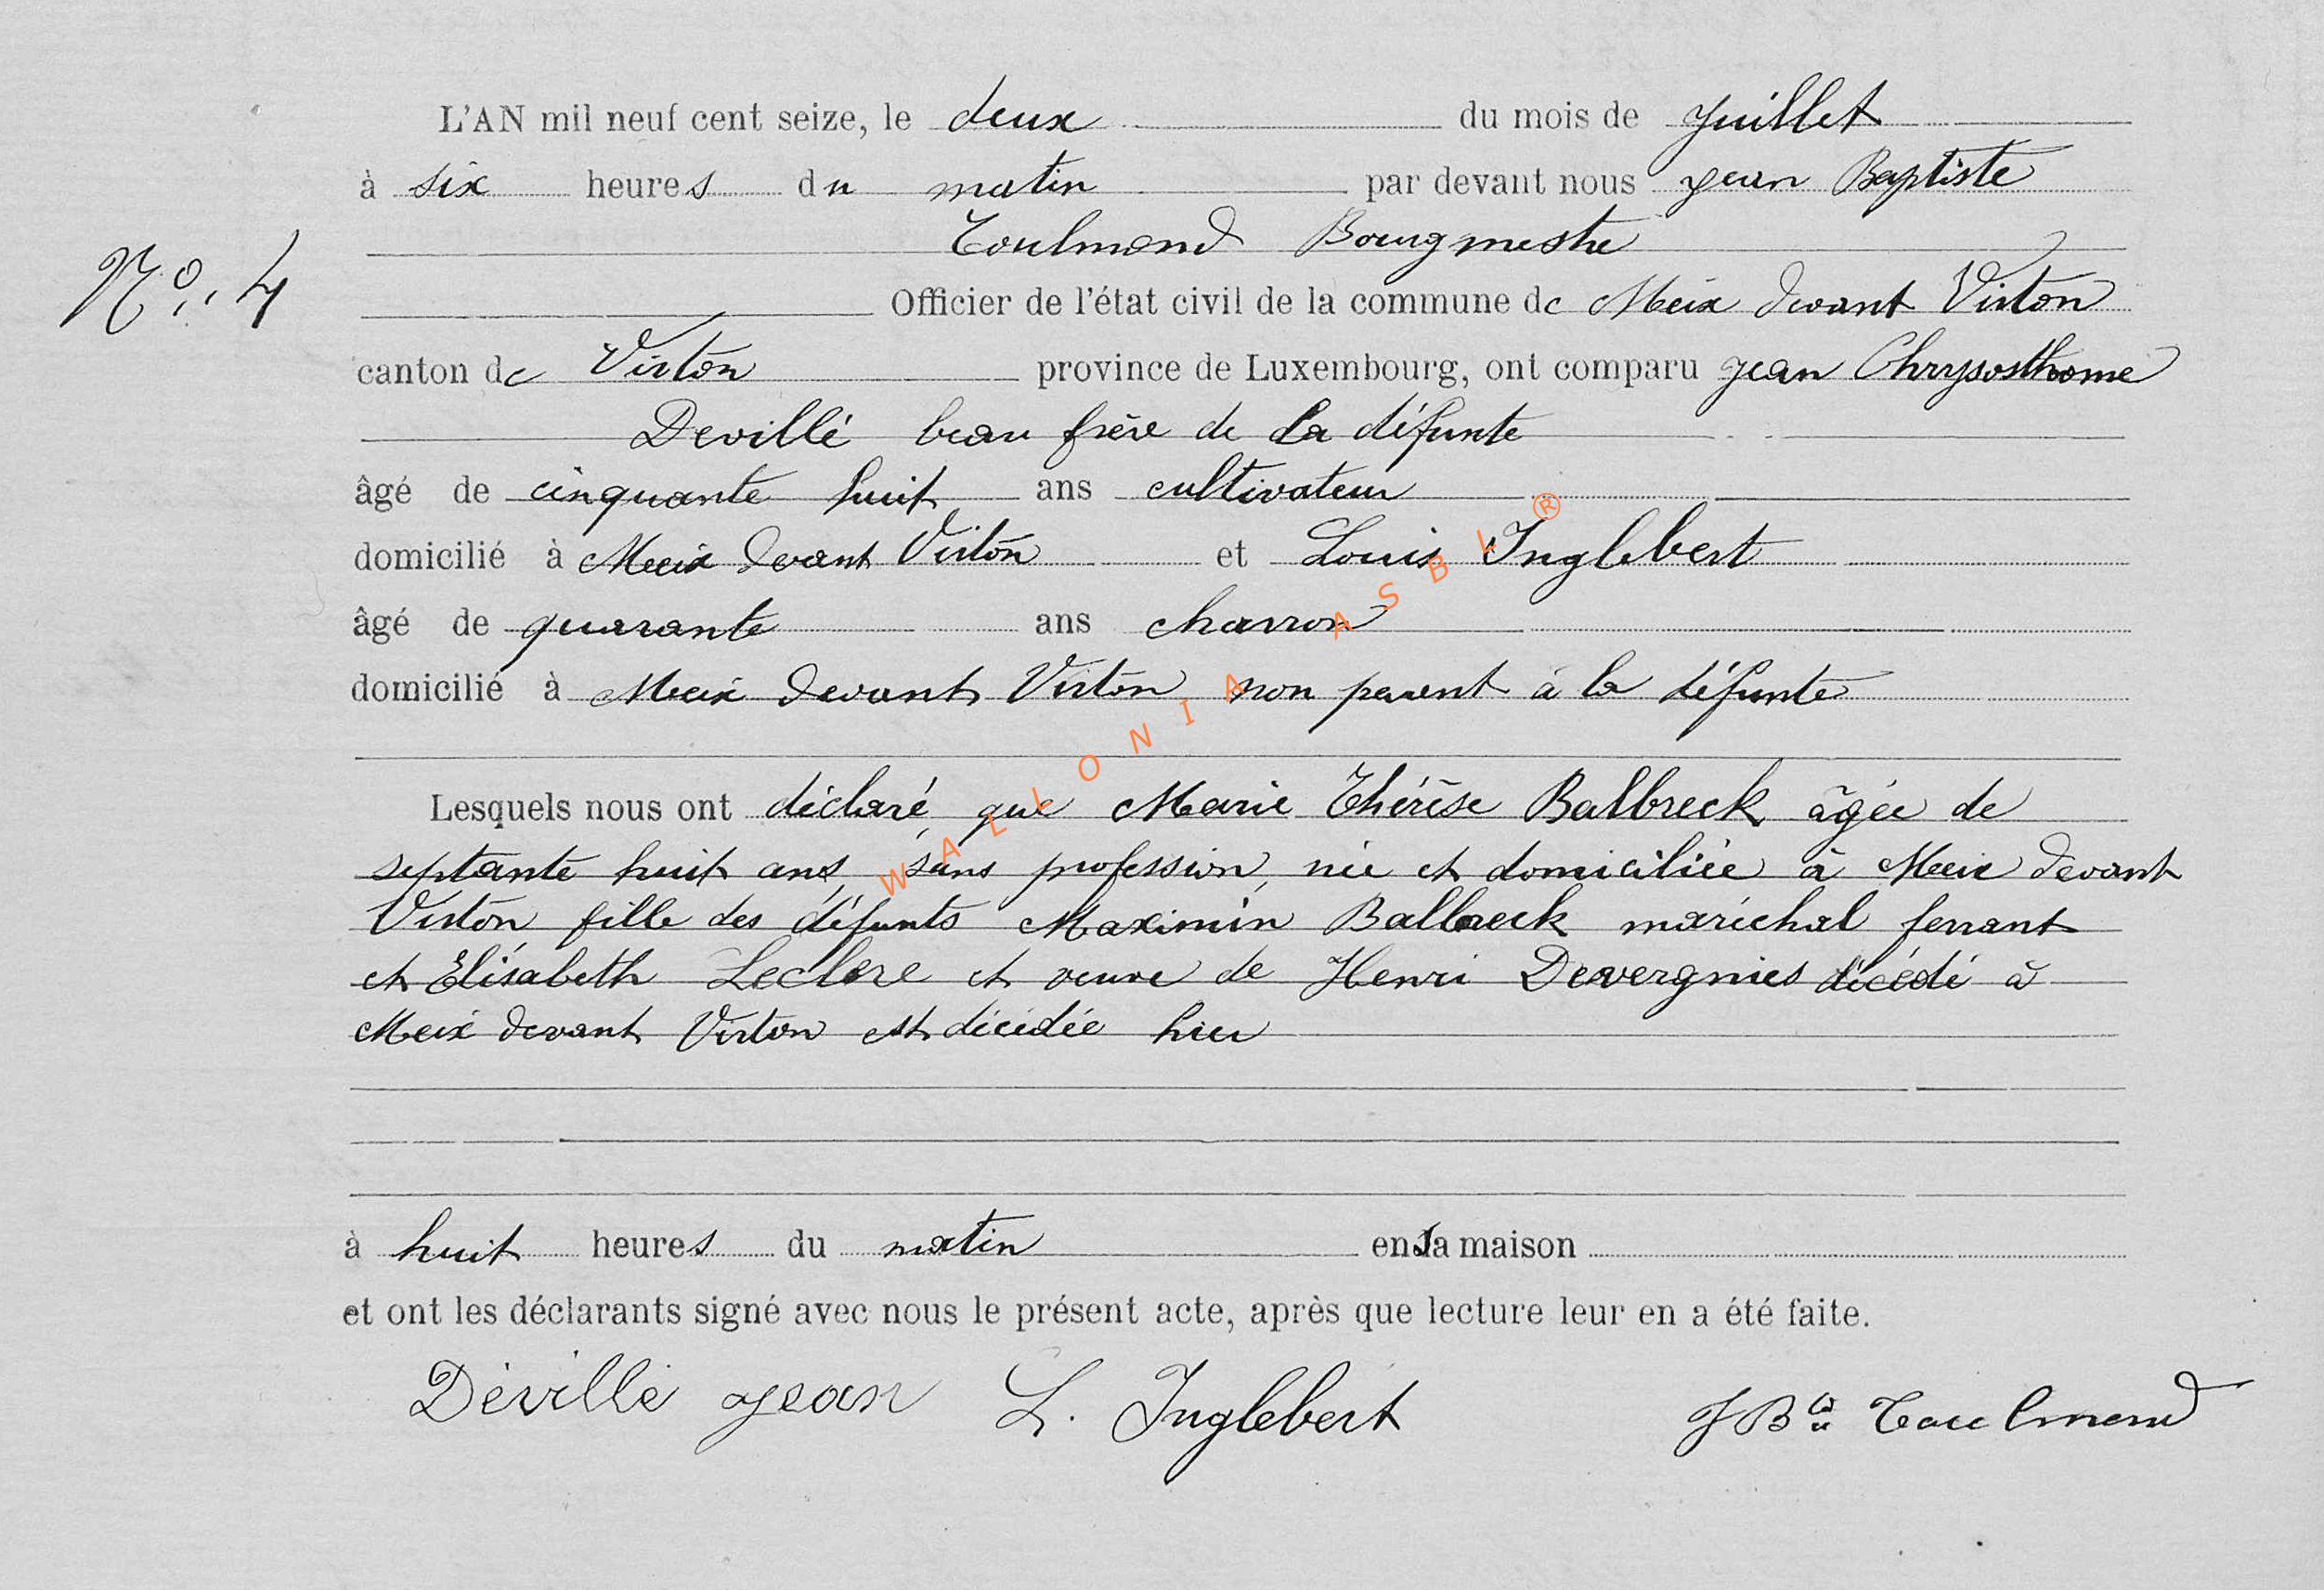 L'AN mil neuf cent seize, le deux du mois de Juillet
à six heures du matin par devant nous Jean Baptiste
Toulmond Bourgmestre
N° 4
Officier de l'état civil de la commune de Meix devant Virton
canton de Virton province de Luxembourg, ont comparu Jean Chrysosthome
Devillé beau frère de la défunte
âgé de cinquante huit ans cultivateur
domicilié à Meix devant Virton et Louis Inglebert
âgé de quarante ans charron
domicilié à Meix devant Virton non parent à la défunte
Lesquels nous ont déclaré que Marie Thérèse Balbreck âgée de
septante huit ans, sans profession, née et domiciliée à Meix devant
Virton fille des défunts Maximin Balbreck maréchal ferrant
et Elisabeth Leclere et veuve de Henri Devergnies décédé à
Meix devant Virton est décédée hier
à huit heures du matin en sa maison
et ont les déclarants signé avec nous le présent acte, après que lecture leur en a été faite.
Dévillé Jean L. Inglebert J Bte Toulmond
WALLONIA ASBL ®